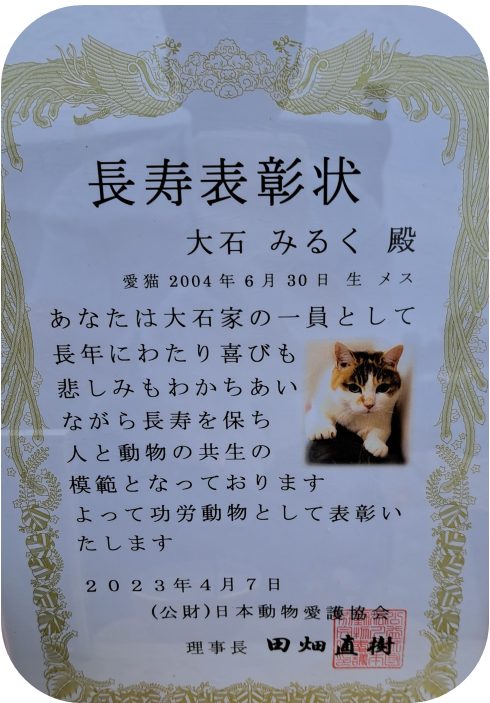 長寿表彰状
大石 みるく 殿
愛猫 2004年6月30日 生 メス
あなたは大石家の一員として
長年にわたり喜びも
悲しみもわかちあい
ながら長寿を保ち
人と動物の共生の
模範となっております
よって功労動物として表彰い
たします
2023年4月7日
(公財)日本動物愛護協会
理事長 田畑直樹